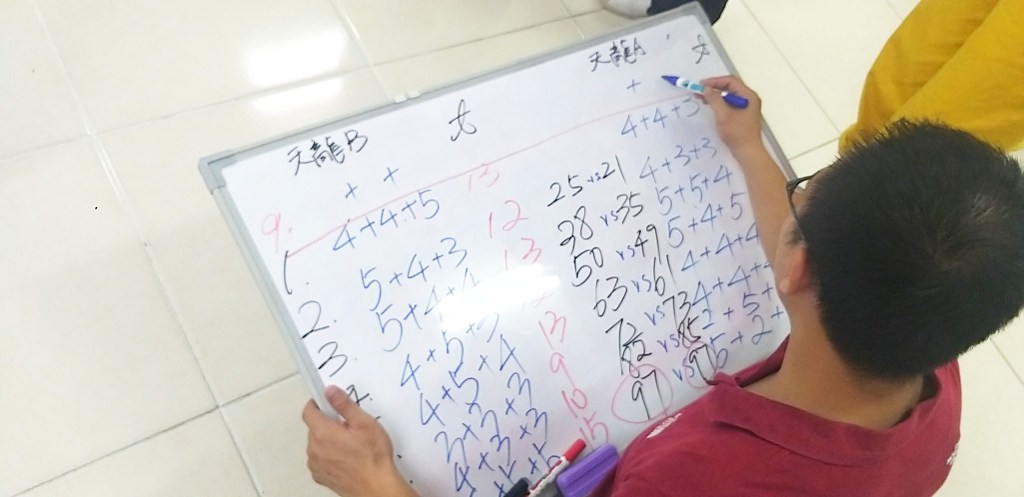 天龍B 大 天龍A 大
+ + +
9. 4+4+5 13 4+4+3
1. 5+4+3 12 25 vs 21 4+3+3
2. 5+4+4 13 38 vs 35 5+5+4
3. 4+5+3 12 50 vs 49 5+4+5
4+5+4 13 63 vs 61 4+4+4
3+3+3 9 72 vs 73 4+4+
4+3+3 10 82 vs 85 2+5+
+5+5 15 97 vs 97 5+2+